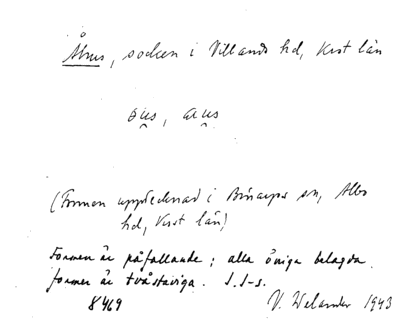 Åhus, socken i Villands hd, Krist län
(Formen upptecknad i Brösarps sn, Albo
hd, Krist län)
Formen är påfallande; alla övriga belagda
former är tvåstaviga. I. I-s.
8469 V. Welander 1943